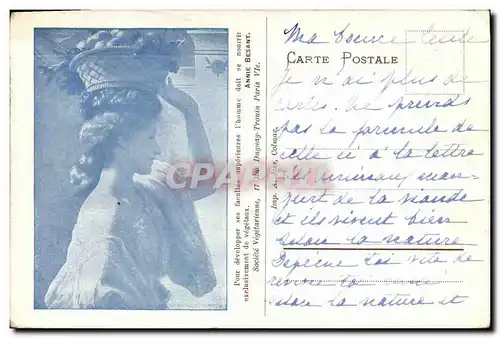 Pour développer ses facultés supérieures l'homme doit se nourrir
exclusivement de végétaux.
ANNIE BESANT.
Société Végétarienne, 17 Rue Duguay-Trouin Paris VIe.
CPARAMA
Imp. Colmar.
CARTE POSTALE
Ma bonne
Je n'ai plus de
cartes. Ne prends
pas la formule de
celle ci à la lettre
les animaux
de la viande
et ils vivent bien
selon la nature
toi vite de
la nature et